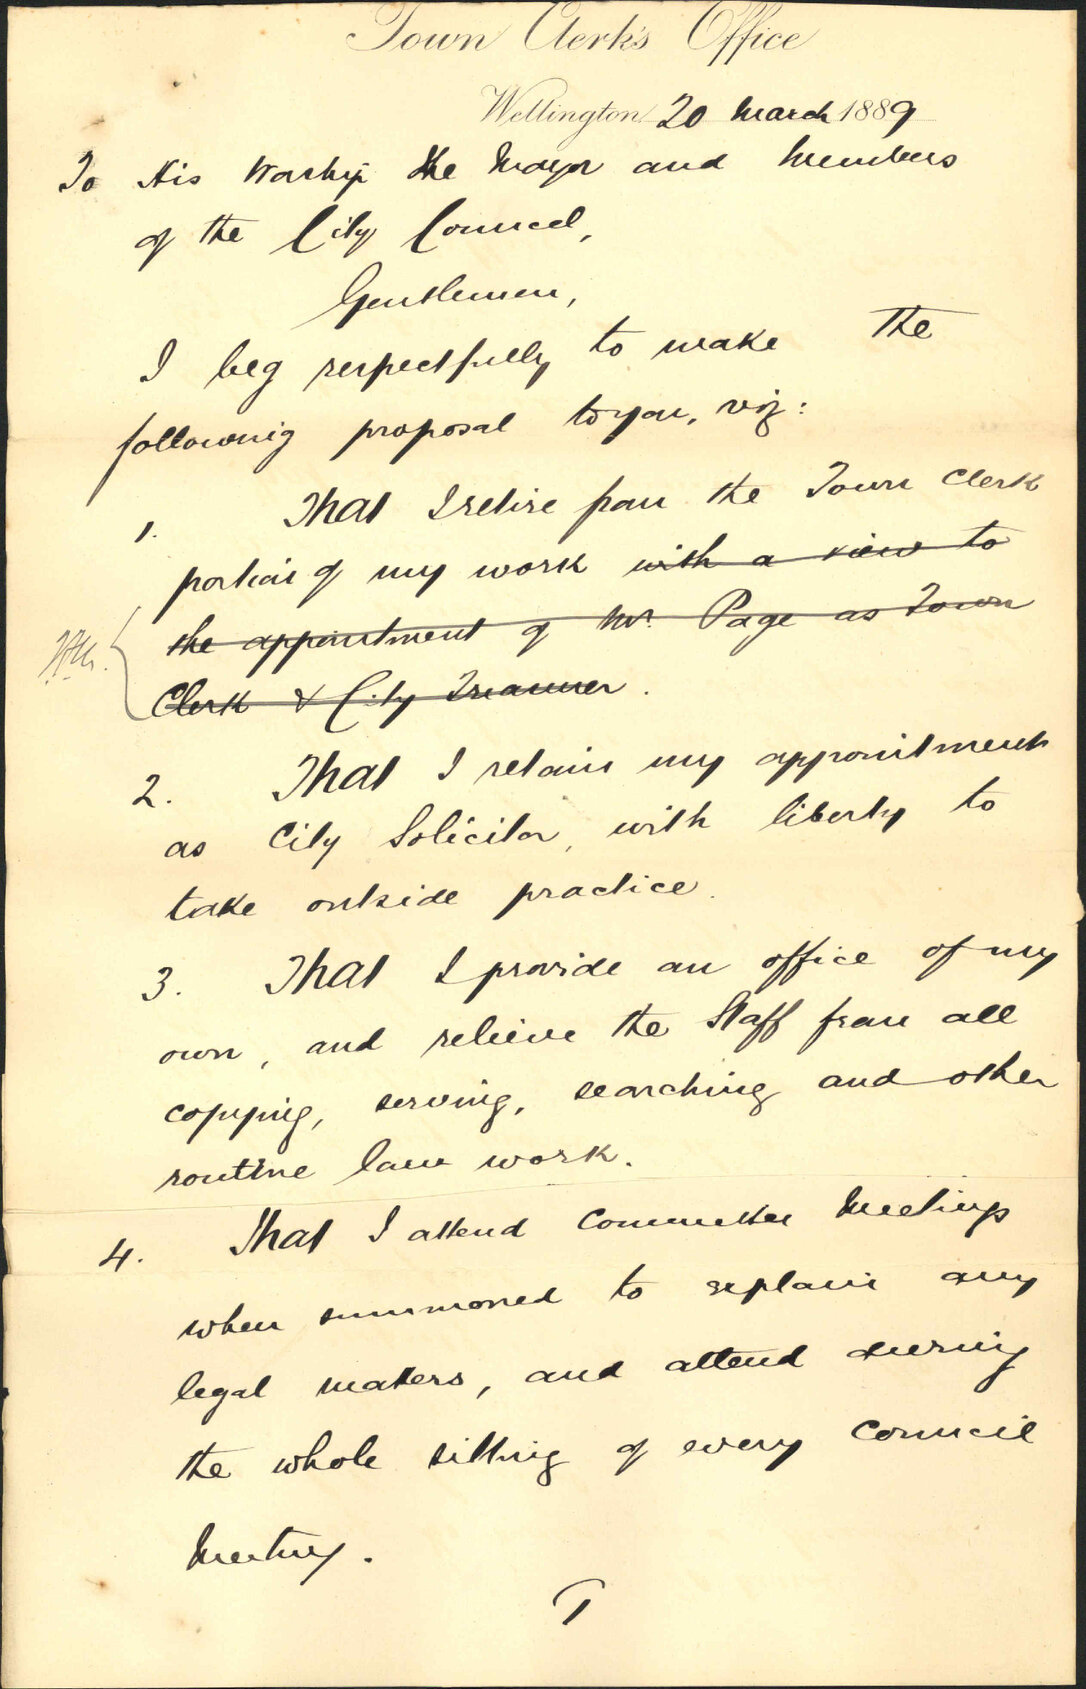 Town Clerk's Office
Wellington 20 March 1889
To His Worship the Mayor and Members
of the City Council,
Gentlemen,
I beg respectfully to make the
following proposal to you, viz:
1. That I retire from the Town Clerk
portion of my work with a view to
the appointment of Mr. Page as Town
Clerk & City Treasurer.
2. That I retain my appointment
as City Solicitor, with liberty to
take outside practice.
3. That I provide an office of my
own, and relieve the Staff from all
copying, serving, searching and other
routine law work.
4. That I attend Committee Meetings
when summoned to explain any
legal matters, and attend during
the whole sitting of every Council
Meeting.